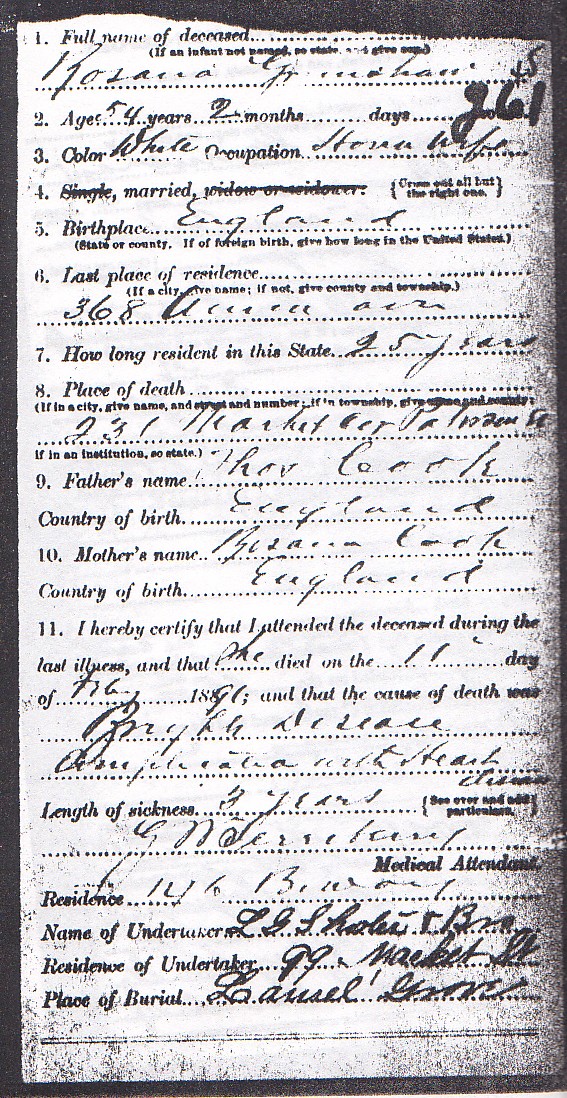 1. Full name of deceased
(If an infant not named, so state, and give sex.)
Rosana Grimshaw
261
2. Age 54 years 2 months days
3. Color White Occupation House Wife
4. Single, married, widow or widower. {Cross out all but the right one.}
5. Birthplace England
(State or county. If of foreign birth, give how long in the United States.)
6. Last place of residence
(If a city, give name; if not, give county and township.)
368
7. How long resident in this State 25 years
8. Place of death
(If in a city, give name, and street and number; if in township, give name and county;
231 Market
if in an institution, so state.)
9. Father's name Thos Cook
Country of birth England
10. Mother's name Rosana Cook
Country of birth England
11. I hereby certify that I attended the deceased during the
last illness, and that she died on the 11 day
of Feby 1891; and that the cause of death was
Brights Disease
Complication with Heart
disease
Length of sickness 3 years {See over and add particulars.}
Medical Attendant.
Residence
Name of Undertaker & Bro
Residence of Undertaker 99 Market St
Place of Burial Laurel Grove